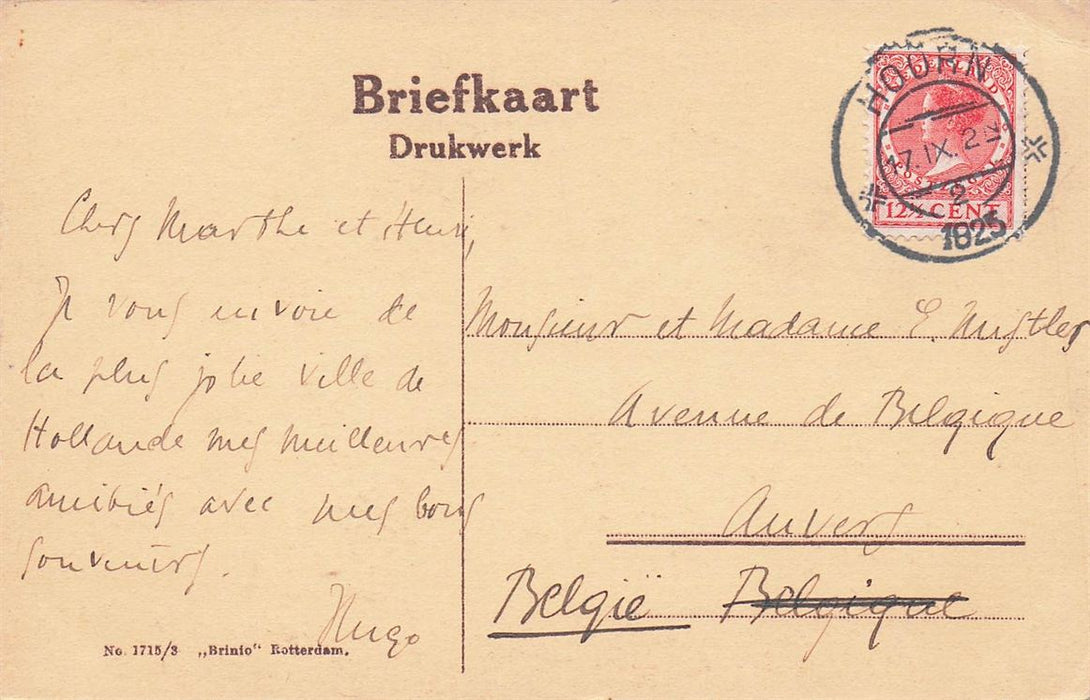 Briefkaart
Drukwerk
HOORN
17.IX. 2
2
1825
NEDERLAND
POSTZEGEL
12½ CENT
Chers Marthe et Henri,
Je vous envoie de
la plus jolie ville de
Hollande mes meilleures
amitiés avec mes bons
souvenirs.
Hugo
Monsieur et Madame E. Mistler
Avenue de Belgique
Anvers
België Belgique
No. 1715/3 „Brinio“ Rotterdam.